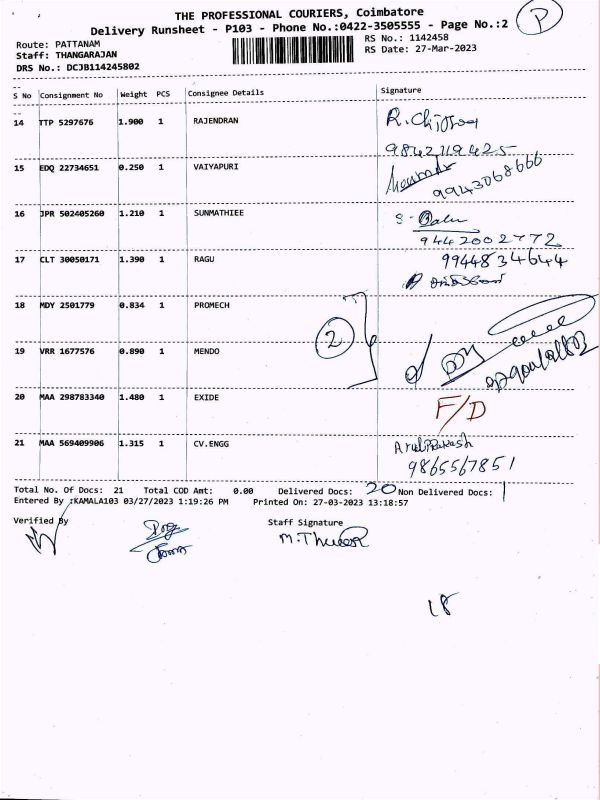 THE PROFESSIONAL COURIERS, Coimbatore
Delivery Runsheet - P103 - Phone No.:0422-3505555 - Page No.:2
P
Route: PATTANAM
RS No.: 1142458
Staff: THANGARAJAN
RS Date: 27-Mar-2023
DRS No.: DCJB114245802
S No Consignment No Weight PCS Consignee Details Signature
14 TTP 5297676 1.900 1 RAJENDRAN
9842119425
15 EDQ 22734651 0.250 1 VAIYAPURI
9943068666
16 JPR 502405260 1.210 1 SUNMATHIEE
9442002772
17 CLT 30050171 1.390 1 RAGU 9944834644
18 MDY 2501779 0.834 1 PROMECH
2
19 VRR 1677576 0.890 1 MENDO
20 MAA 298783340 1.480 1 EXIDE F/D
21 MAA 569409906 1.315 1 CV.ENGG Arul Prakash
9865567851
Total No. Of Docs: 21 Total COD Amt: 0.00 Delivered Docs: 20 Non Delivered Docs: 1
Entered By :KAMALA103 03/27/2023 1:19:26 PM Printed On: 27-03-2023 13:18:57
Verified By Staff Signature
18